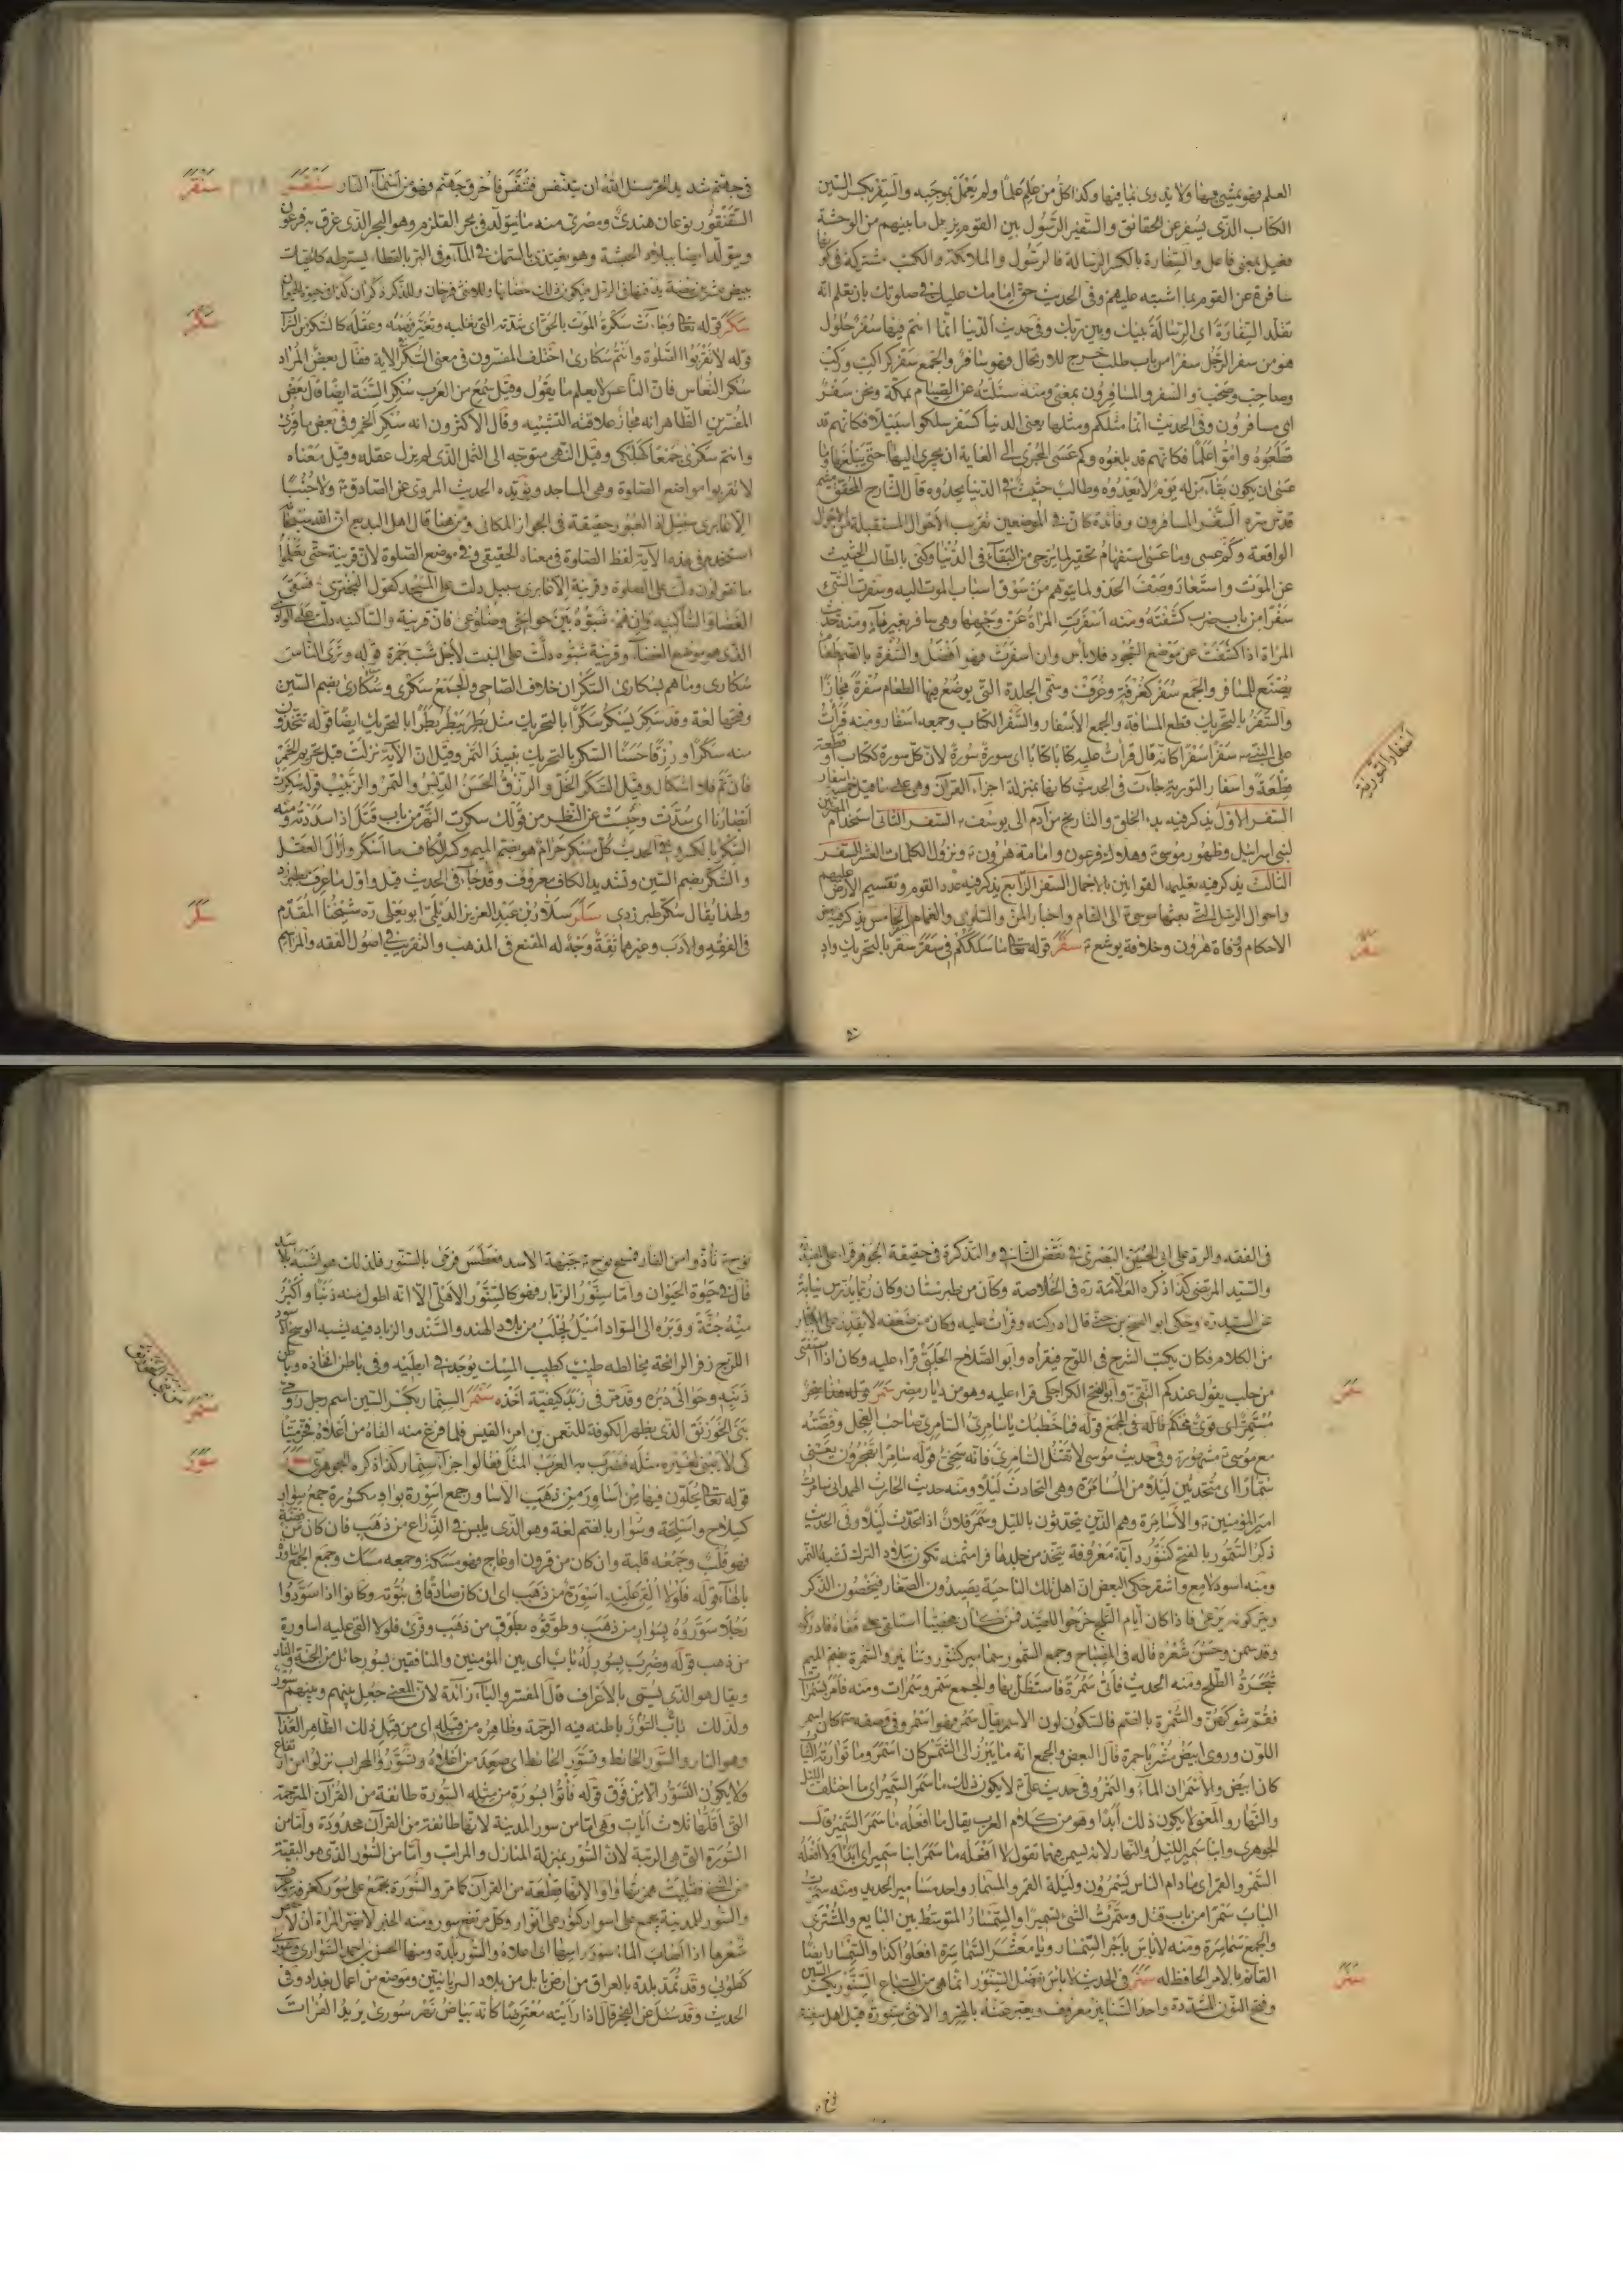 العلم فهو يمشي بها ولا يدرى بما فيها وكذا كل من علم علما ولم يعمل بموجبه والسفر بكسر السين
الكتاب الذى يسفر عن الحقائق والسفير الرسول بين القوم يزيل ما بينهم من الوحشة
فعيل بمعنى فاعل والسفارة بالكسر الرسالة فالرسول والملائكة والكتب مشتركة في
سافرة عن القوم بما اشتبه عليهم وفى الحديث حق امامك عليك في صلوتك بان تعلم انه
تقلد السفارة اى الرسالة بينك وبين ربك وفى حديث الدنيا انما انتم فيها سفر حلول
هو من سفر الرجل سفرا من باب طلب خرج للارتحال فهو سافر والجمع سفر كراكب وركب
وصاحب وصحب والسفر والمسافرون بمعنى ومنه سئلته عن الصيام بمكة ونحن سفر
اى مسافرون وفى الحديث انما مثلكم ومثلها يعنى الدنيا كسفر سلكوا سبيلا فكانهم قد
قطعوه واموا علما فكانهم قد بلغوه وكم عسى المجرى الى الغاية ان يجرى اليها حتى يبلغها وما
عسى ان يكون بقاء من له يوم لا يعدوه وطالب حثيث في الدنيا يحدوه قال الشارح المحقق ميثم
قدس سره السفر المسافرون وفائدة كان في الموضعين تقريب الاحوال المستقبلة من الاحوال
الواقعة وكم عسى وما عسى استفهام تحقير لما يرجى من البقاء في الدنيا وكنى بالطالب الحثيث
عن الموت واستعار وصف الحدو لما يتوهم من سوق اسباب الموت اليه وسفرت الشئ
سفرا من باب ضرب كشفته ومنه اسفرت المراة عن وجهها وهى سافر بغير هاء ومنه حديث
المراة اذا كشفت عن موضع السجود فلا باس وان اسفرت فهو افضل والسفرة بالضم طعام
يصنع للمسافر والجمع سفر كغرفة وغرف وسمى الجلدة التى يوضع فيها الطعام سفرة مجازا
والسفر بالتحريك قطع المسافة والجمع الاسفار والسفر الكتاب وجمعه اسفار ومنه قرات
على النبى ص سفرا سفرا كانه قال قرات عليه كتابا كتابا اى سورة سورة لان كل سورة ككتاب او قطعة
قطعة واسفار التورية جاءت في الحديث كانها بمنزلة اجزاء القرآن وهى على ما قيل خمسة اسفار
السفر الاول يذكر فيه بدء الخلق والتاريخ من آدم الى يوسف ع السفر الثانى استخدام المصريين
لبنى اسرائيل وظهور موسى ع وهلاك فرعون وامامة هرون ع ونزول الكلمات العشر السفر
الثالث يذكر فيه تعليم القوانين بالاجمال السفر الرابع يذكر فيه عدد القوم وتقسيم الارض عليهم
واحوال الرسل التى بعثها موسى ع الى الشام واخبار المن والسلوى والغمام الخامس يذكر فيه بعض
الاحكام ووفاة هرون وخلافة يوشع ع سقر قوله تعالى ما سلككم في سقر سقر بالتحريك واد
اسفار التورية
سقر
في جهنم شديد الحر سئل الله ان يتنفس فتنفس فاحرق جهنم وهو من اسماء النار سقنقر
السقنقور نوعان هندى ومصرى منه ما يتولد فى بحر القلزم وهو البحر الذى غرق به فرعون
ويتولد ايضا ببلاد الحبشة وهو يغتذى بالسمك في الماء وفى البر بالقطا يسترطه كالحيات
سكر قوله تعالى وجاءت سكرة الموت بالحق اى شدته التى تغلبه وتغير فهمه وعقله كالسكر من الشراب
قوله لا تقربوا الصلوة وانتم سكارى اختلف المفسرون في معنى السكر الاية فقال بعض المراد
سكر النعاس فان الناعس لا يعلم ما يقول وقيل سمع من العرب سكر السنة ايضا قال بعض
المفسرين الظاهر انه مجاز علاقته التشبيه وقال الاكثرون انه سكر الخمر وفى بعض ما قرئ
وانتم سكرى جمعا كهلكى وقيل النهى متوجه الى الثمل الذى لم يزل عقله وقيل معناه
لا تقربوا مواضع الصلوة وهى المساجد ويؤيده الحديث المروى عن الصادق ع ولا جنبا
الا عابرى سبيل اذ العبور حقيقة في الجواز المكانى ومن هنا قال اهل البديع ان الله سبحانه
استخدم في هذه الآية لفظ الصلوة في معناه الحقيقى وفى موضع الصلوة لان قرينة حتى تعلموا
ما تقولون دلت على الصلوة وقرينة الا عابرى سبيل دلت على المسجد كقول البحترى فسقى
الغضا والساكنيه وان هم شبوه بين جوانحى وضلوعى فان قرينة والساكنيه دلت على الوادى
الذى هو موضع الغضا وقرينة شبوه دلت على النبت لاجل شب جمرة قوله وترى الناس
سكارى وما هم بسكارى السكران خلاف الصاحى والجمع سكرى وسكارى بضم السين
وفتحها لغة وقد سكر يسكر سكرا بالتحريك مثل بطر يبطر بطرا بالتحريك ايضا قوله تتخذون
منه سكرا ورزقا حسنا السكر بالتحريك نبيذ التمر وقيل ان الآية نزلت قبل تحريم الخمر
فان تم فلا اشكال وقيل السكر الخل والرزق الحسن الدبس والتمر والزبيب قوله سكرت
ابصارنا اى سدت وحبست عن النظر من قولك سكرت النهر من باب قتل اذا سددته ومنه
السكر بالكسر وفى الحديث كل مسكر حرام هو بضم الميم وكسر الكاف ما اسكر وازال العقل
والسكر بضم السين وتشديد الكاف معروف وقد جاء في الحديث قيل واول ما عرف بطبرزد
ولهذا يقال سكر طبرزدى سلر سلار بن عبد العزيز الديلمى ابو يعلى ره شيخنا المقدم
فى الفقه والادب وغيرهما ثقة وجه له المقنع فى المذهب والتقريب في اصول الفقه والمراسم
سقنقر
سكر
سلر
فى الفقه والرد على ابى الحسين البصرى في نقض الشافى والتذكرة فى حقيقة الجوهر قرا على المفيد
والسيد المرتضى كذا ذكره العلامة ره فى الخلاصة وكان من طبرستان وكان ربما يدرس نيابة
عن السيد ره وحكى ابو الفتح بن جنى قال ادركته وقرات عليه وكان من ضعفه لا يقدر على الاكثار
من الكلام فكان يكتب الشرح فى اللوح فيقراه وابو الصلاح الحلبى قراء عليه وكان اذا استفتى
من حلب يقول عندكم التقى وابو الفتح الكراجكى قراء عليه وهو من ديار مصر سمر قوله سحر
مستمر اى قوى محكم قاله فى المجمع قوله فما خطبك يا سامرى السامرى صاحب العجل وقصته
مع موسى ع مشهورة وفى حديث موسى لا تقتل السامرى فانه سخى قوله سامرا تهجرون يعنى
سمارا اى متحدثين ليلا من المسامرة وهى التحادث ليلا ومنه حديث الحارث الهمدانى سامرت
امير المؤمنين ع والسامرة وهم الذين يتحدثون بالليل وسمر فلان اذا تحدث ليلا وفى الحديث
ذكر السمور بالفتح كتنور دابة معروفة يتخذ من جلدها فراء مثمنة تكون ببلاد الترك تشبه النمر
ومنه اسود لامع واشقر حكى البعض ان اهل تلك الناحية يصيدون الصغار فيخصون الذكر
ويتركونه يرعى فاذا كان ايام الثلج خرجوا للصيد فمن كان مخصيا استلقى على قفاه فادركوه
وقد سمن وحسن شعره قاله فى المصباح وجمع السمور سمامير كتنور وتنانير والسمرة بضم الميم
شجرة الطلح ومنه الحديث فاتى سمرة فاستظل بها والجمع سمر وسمرات ومنه فامر بسمرات
فقم شوكهن والسمرة بالضم فالسكون لون الاسمر يقال سمر فهو اسمر وفى وصفه ص كان اسمر
اللون وروى ابيض مشربا حمرة قال البعض والجمع انه ما يبرز الى الشمس كان اسمر وما تواريه الثياب
كان ابيض والاسمران الماء والتمر وفى حديث على ع لا يكون ذلك ما سمر السمير اى ما اختلف الليل
والنهار والمعنى لا يكون ذلك ابدا وهو من كلام العرب يقال ما افعله ما سمر السمير قال
الجوهرى وابنا سمير الليل والنهار لانه يسمر فيهما تقول لا افعله ما سمر ابنا سمير اى ابدا ولا افعله
السمر والقمر اى ما دام الناس يسمرون وليلة القمر والمسمار واحد مسامير الحديد ومنه سمرت
الباب سمرا من باب قتل وسمرت الشئ تسميرا والسمسار المتوسط بين البايع والمشترى
والجمع سماسرة ومنه لا باس باجر السمسار ويا معشر السماسرة افعلوا كذا والسمسار ايضا
القائم بالامر الحافظ له سنر فى الحديث لا باس بفضل السنور انما هى من السباع السنور بكسر السين
وفتح النون المشددة واحد السنانير معروف ويعبر عنه بالهر والانثى سنورة قيل اهل سفينة
سمر
سنر
نوح ع تأذوا من الفار فمسح نوح ع جبهة الاسد فعطس فرمى بالسنور فلذلك هو اشبه بالاسد
قال في حيوة الحيوان واما سنور الزباد فهو كالسنور الاهلى الا انه اطول منه ذنبا واكبر
منه جثة ووبره الى السواد اميل يجلب من بلاد الهند والسند والزباد فيه يشبه الوسخ الاسود
اللزج زفر الرائحة يخالطه طيب كطيب المسك يوجد فى ابطيه وفى باطن افخاذه وباطن
ذنبه وحوالى دبره وقد مر فى زبد كيفية اخذه سنمر السنمار بكسر السين اسم رجل رومى
بنى الخورنق الذى بظهر الكوفة للنعمن بن امرئ القيس فلما فرغ منه القاه من اعلاه فخر ميتا
كى لا يبنى لغيره مثله فضرب به العرب المثل فقالوا جزاء سنمار كذا ذكره الجوهرى سور
قوله تعالى يحلون فيها من اساور من ذهب الاساور جمع اسورة بواو مكسورة جمع سوار
كسلاح واسلحة وسوار بالضم لغة وهو الذى يلبس في الذراع من ذهب فان كان من فضة
فهو قلب وجمعه قلبة وان كان من قرون او عاج فهو مسكة وجمعه مسك وجمع الجمع اساورة
بالهاء قوله فلولا القى عليه اسورة من ذهب اى ان كان صادقا في نبوته وكانوا اذا سودوا
رجلا سوروه بسوار من ذهب وطوقوه بطوق من ذهب وقرئ فلولا القى عليه اساورة
من ذهب قوله وضرب بسور له باب اى بين المؤمنين والمنافقين بسور حائل من الجنة والنار
ويقال هو الذى يسمى بالاعراف قال المفسر والباء زائدة لان المعنى جعل بينهم وبينهم سور
ولذلك باب السور باطنه فيه الرحمة وظاهره من قبله اى من قبل ذلك الظاهر العذاب
وهو النار والسور الحائط وتسور الحائط اى صعد من اعلاه وتسوروا المحراب نزلوا من ارتفاع
ولا يكون التسور الا من فوق قوله فأتوا بسورة من مثله السورة طائفة من القرآن المترجمة
التى اقلها ثلاث ايات وهى اما من سور المدينة لانها طائفة من القرآن محدودة واما من
السورة التى هى الرتبة لان السور بمنزلة المنازل والمراتب واما من السؤر الذى هو البقية
من الشئ فقلبت همزتها واوا لانها قطعة من القرآن كما مر والسورة تجمع على سور كغرفة وغرف
والسور للمدينة يجمع على اسوار كنور على انوار وكل مرتفع سور ومنه الخبر لا يضر المراة ان لا تنقض
شعرها اذا اصاب الماء سور راسها اى اعلاه والسور بلدة ومنها الحسن بن احمد السوارى وسورى
كطوبى وقد تمد بلدة بالعراق من ارض بابل من بلاد السريانيين وموضع من اعمال بغداد وفى
الحديث وقد سئل عن الفجر قال اذا رأيته معترضا كانه بياض نهر سورى يريد الفرات
سنمر
سور